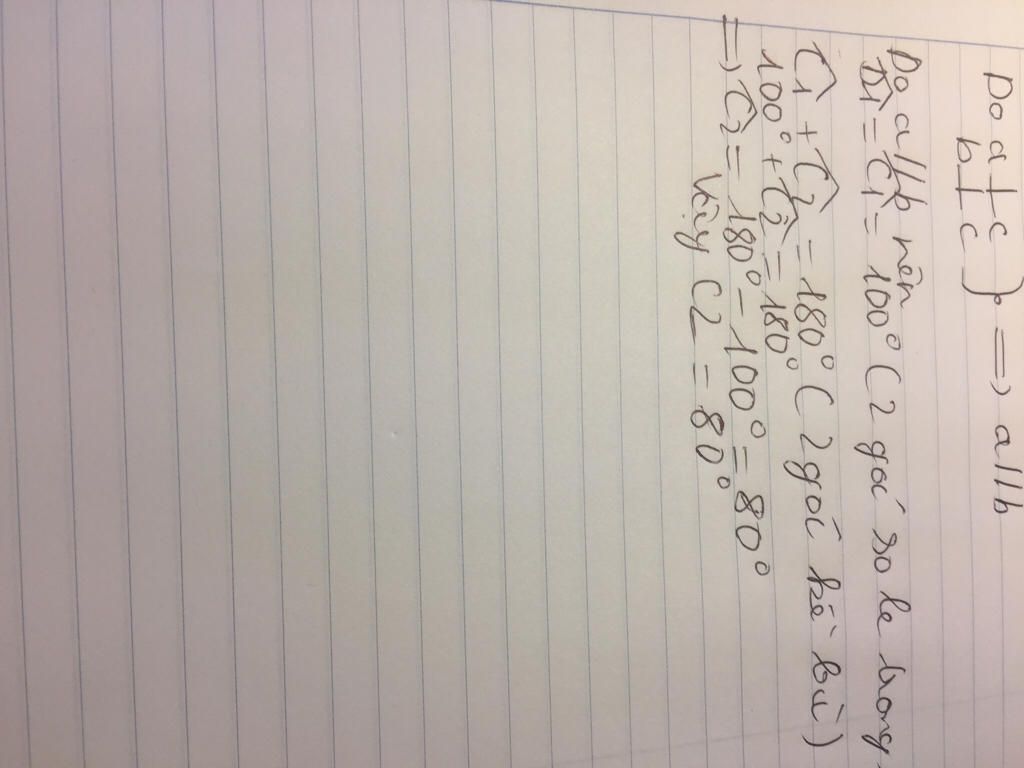 Do a⊥c } => a//b
b⊥c
Do a//b nên
D̂1 = Ĉ1 = 100° (2 góc so le trong)
Ĉ1 + Ĉ2 = 180° (2 góc kề bù)
100° + Ĉ2 = 180°
=> Ĉ2 = 180° - 100° = 80°
Vậy C2 = 80°